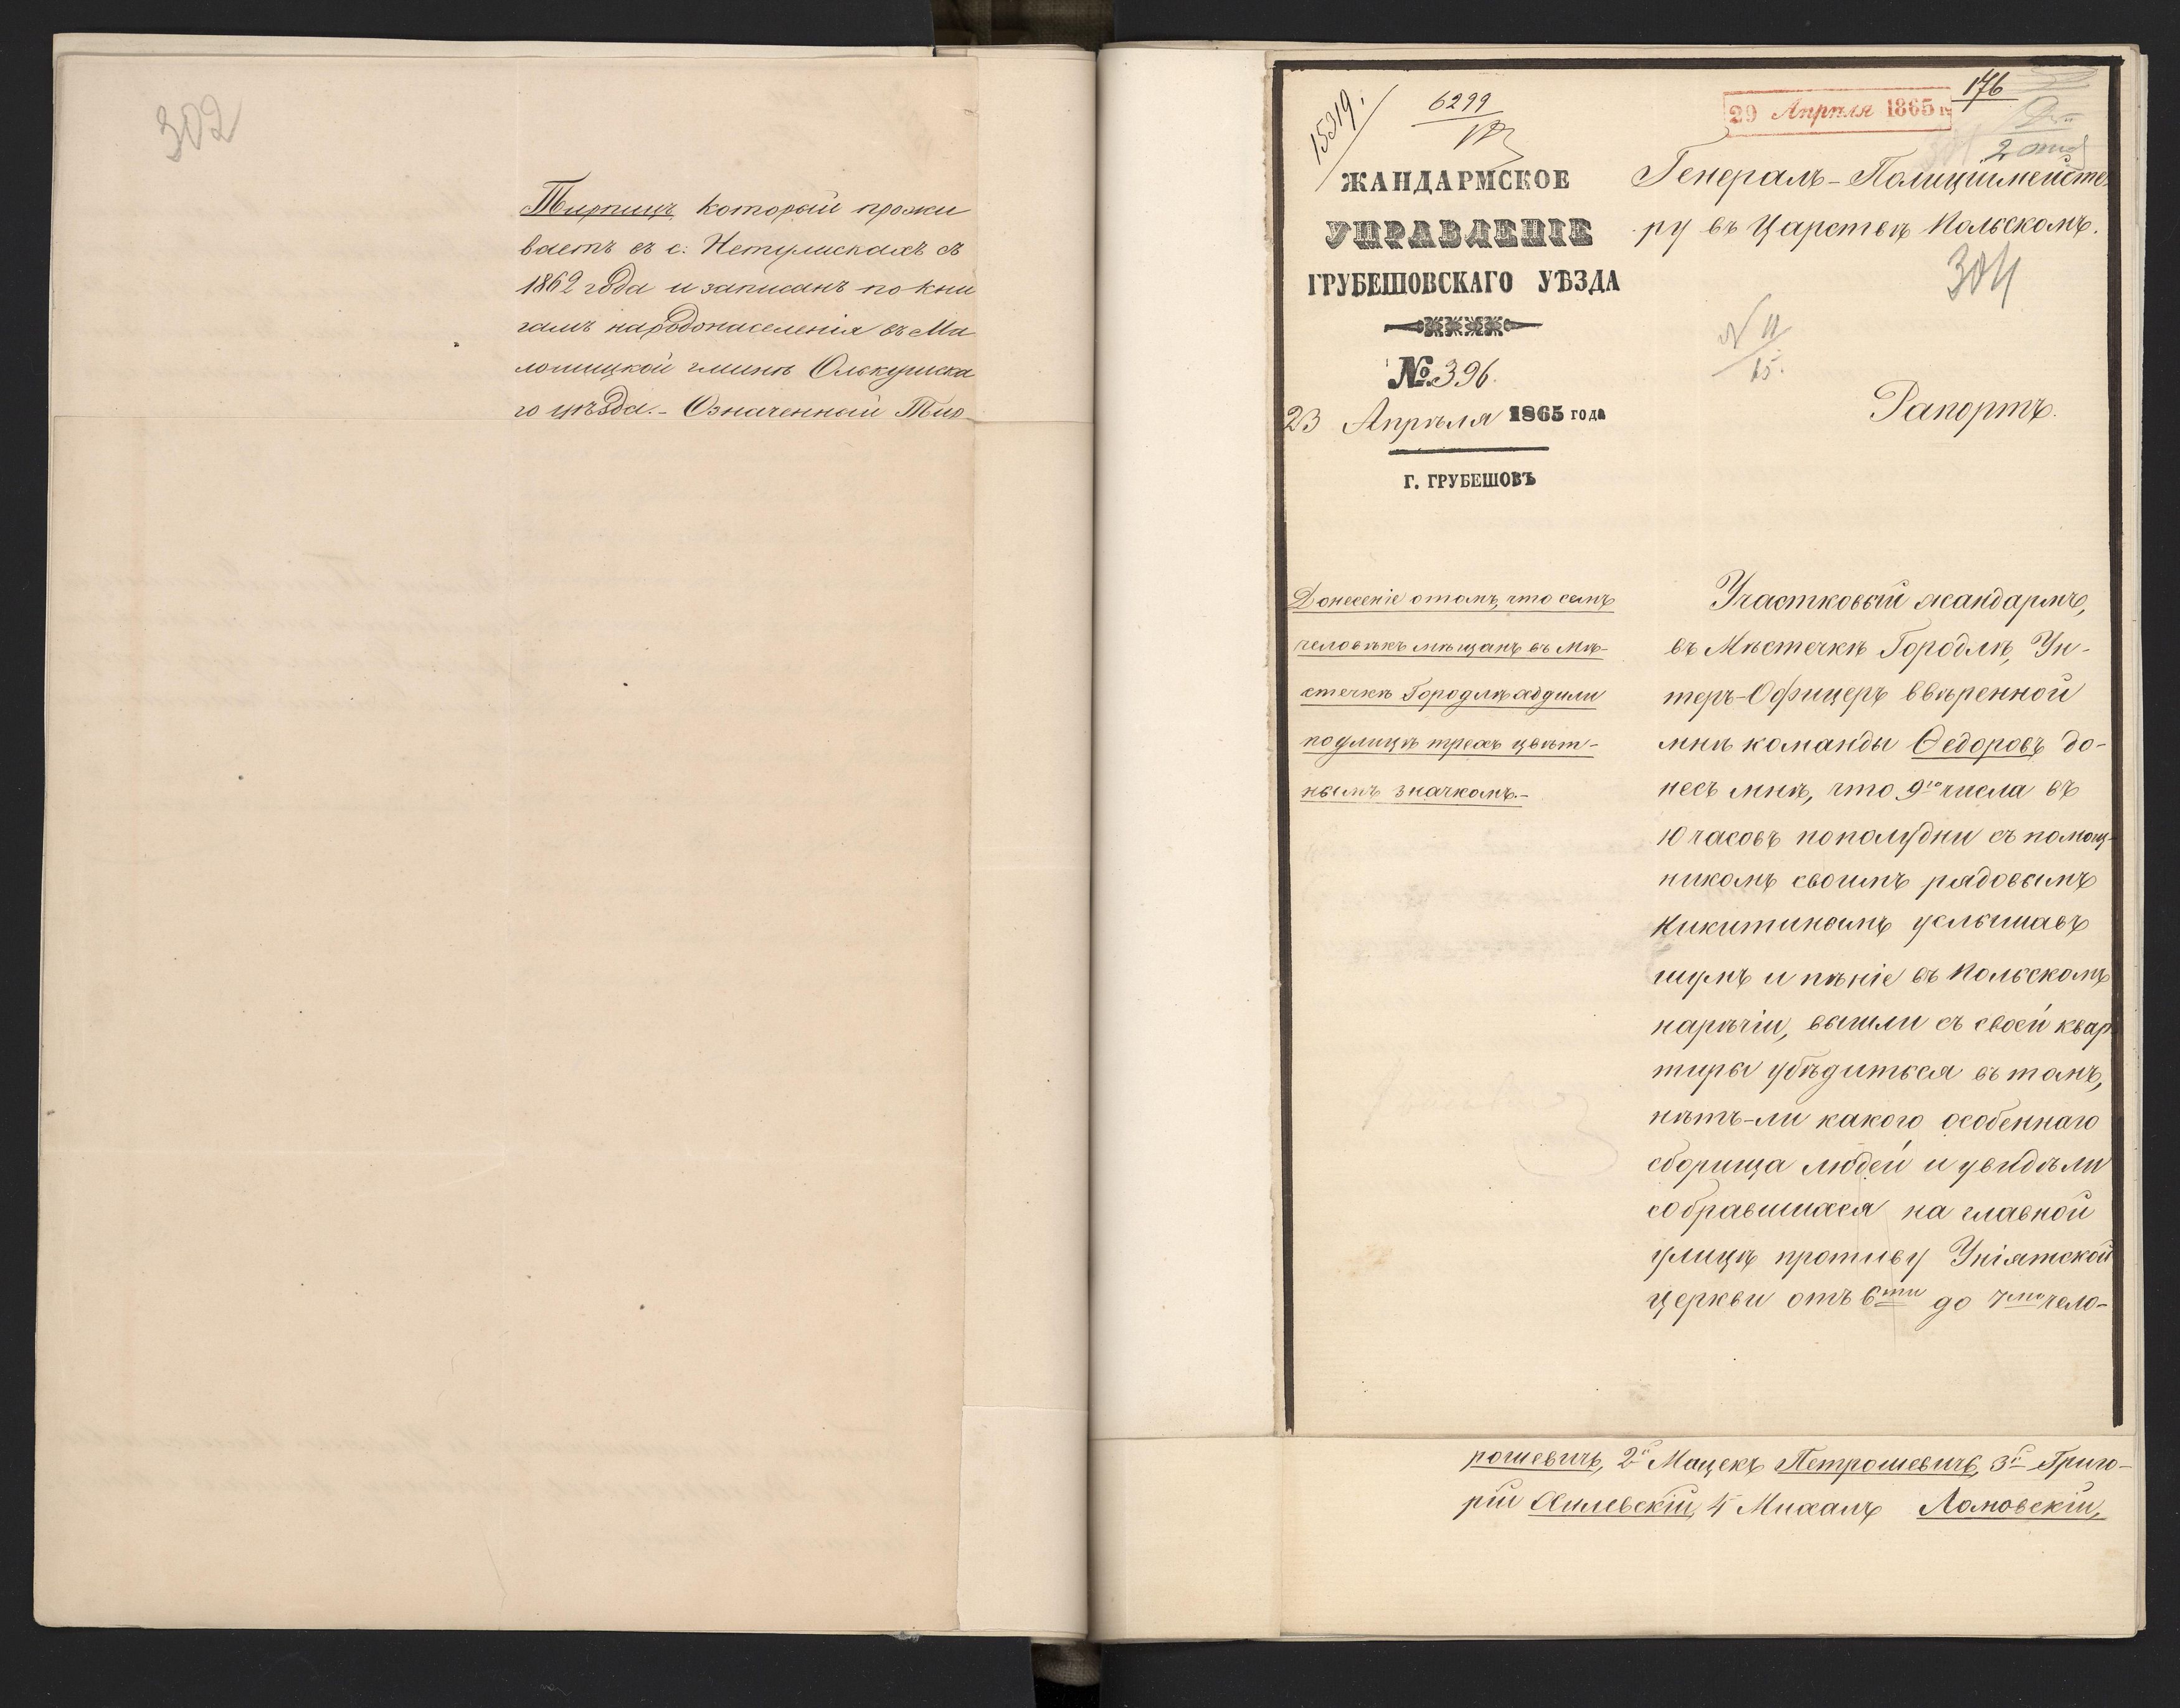 302
Тирпицъ который прожи
ваетъ въ с: Нетулискахъ съ
1862 года и записанъ по кни
гамъ народонаселенія въ Ма
лошицкой гминѣ Олькушска
го уѣзда.- Означенный Тир-
15319.
6299
29 Апрѣля 1865
176
ЖАНДАРМСКОЕ
УПРАВЛЕНІЕ
ГРУБЕШОВСКАГО УѢЗДА
№ 396.
23 Апрѣля 1865 года
Г. ГРУБЕШОВЪ
Генералъ-Полиціймейсте
ру въ Царствѣ Польскомъ.
304
N 11
15.
Рапортъ.
Донесеніе о томъ, что семь
человѣкъ мѣщанъ въ Мѣ-
стечкѣ Городлѣ ходили
по улицѣ трехъ цвѣт-
нымъ значкомъ.-
Участковый жандармъ,
въ Мѣстечкѣ Городлѣ, Ун-
теръ-Офицеръ ввѣренной
мнѣ команды Ѳедоровъ до-
несъ мнѣ, что 9го числа въ
10 часовъ пополудни съ помощ-
никомъ своимъ рядовымъ
Никитинымъ услышавъ
шумъ и пѣніе въ Польскомъ
нарѣчіи, вышли съ своей квар
тиры убѣдиться въ томъ,
нѣтъ-ли какого особеннаго
сборища людей и увидѣли
собравшихся на главной
улицѣ противу Уніятской
церкви отъ 6ти до 7ми чело-
рошевичъ, 2й Мацекъ Петрошевичъ, 3й Григо-
рій Хилевскій, 4 Михалъ Лановскій,